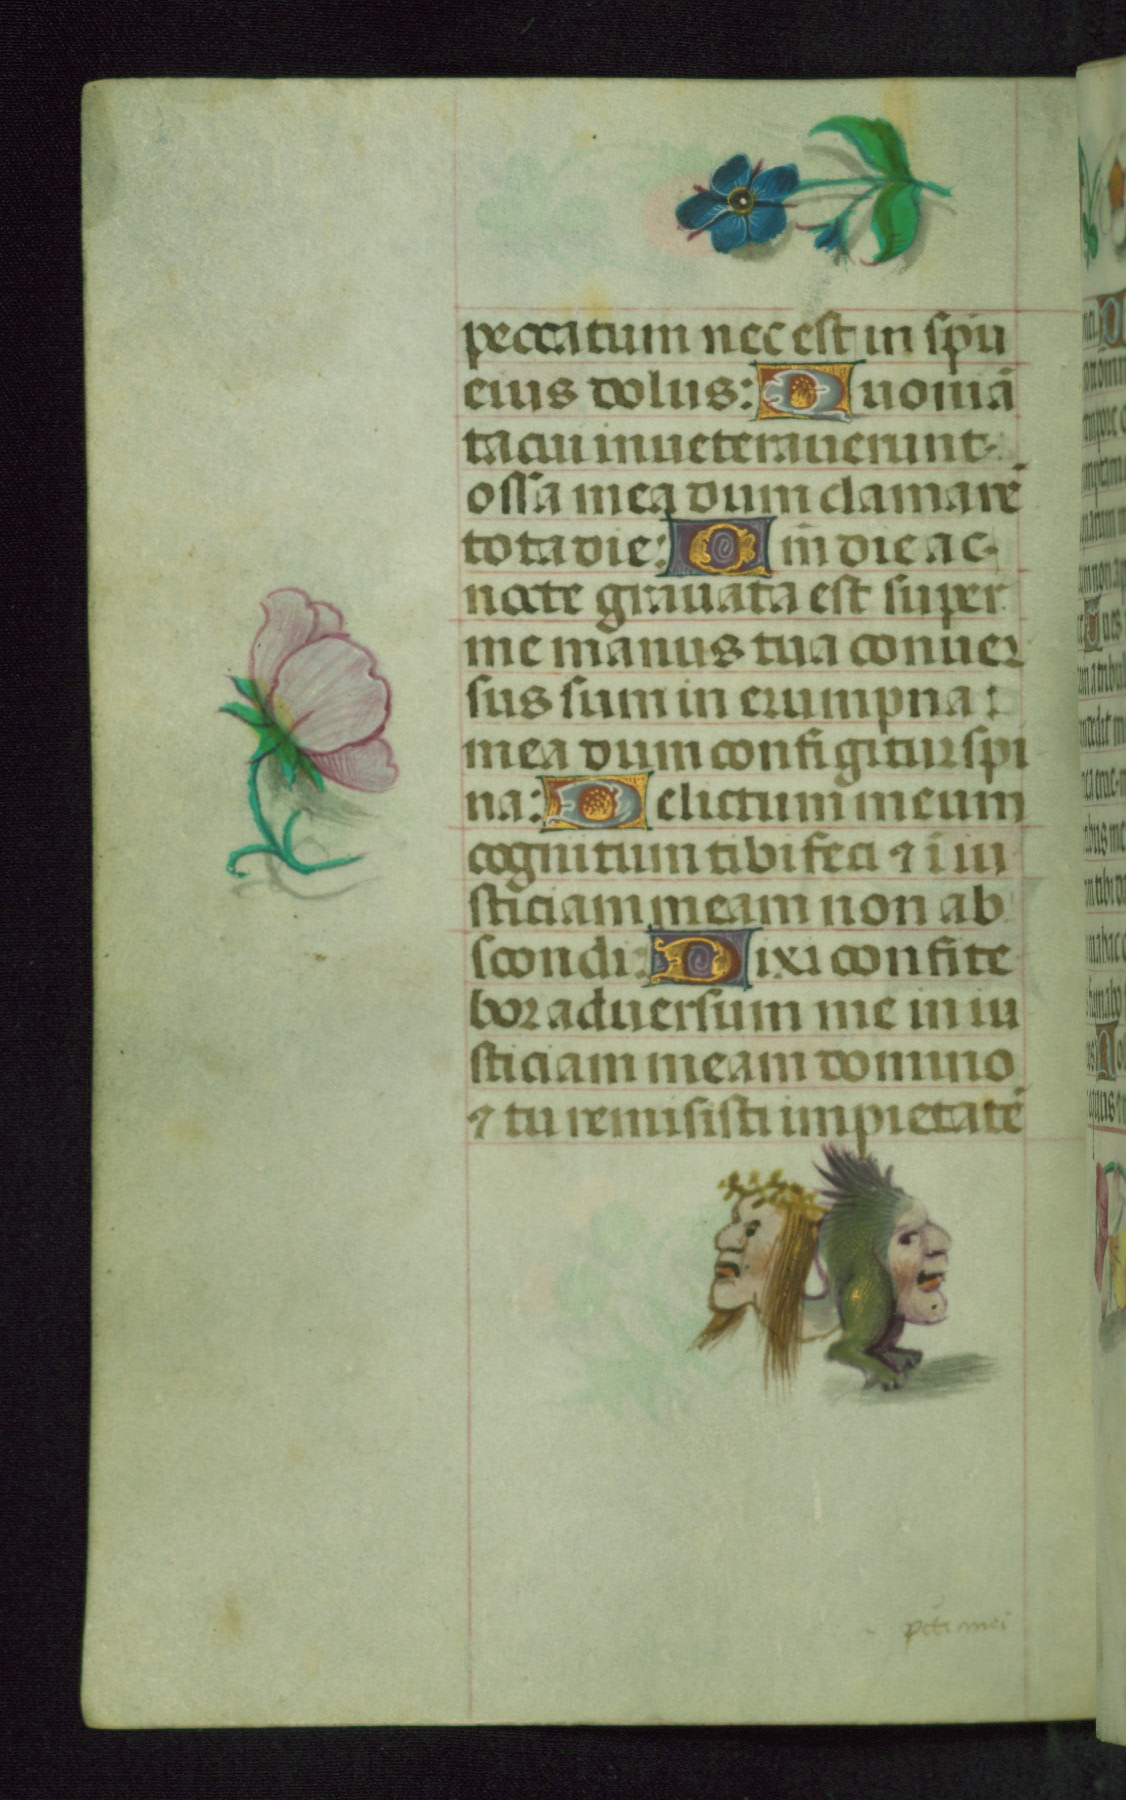 peccatum nec est in spu
eius dolus: Quoniā
tacui inueterauerunt
ossa mea dum clamarē
tota die: Qm̄ die ac
nocte grauata est super
me manus tua conuer
sus sum in erumpna
mea dum configitur spi
na: Delictum meum
cognitum tibi feci ⁊ ī iu
sticiam meam non ab
scondi: Dixi confite
bor aduersum me in iu
sticiam meam domino
⁊ tu remisisti impietatē